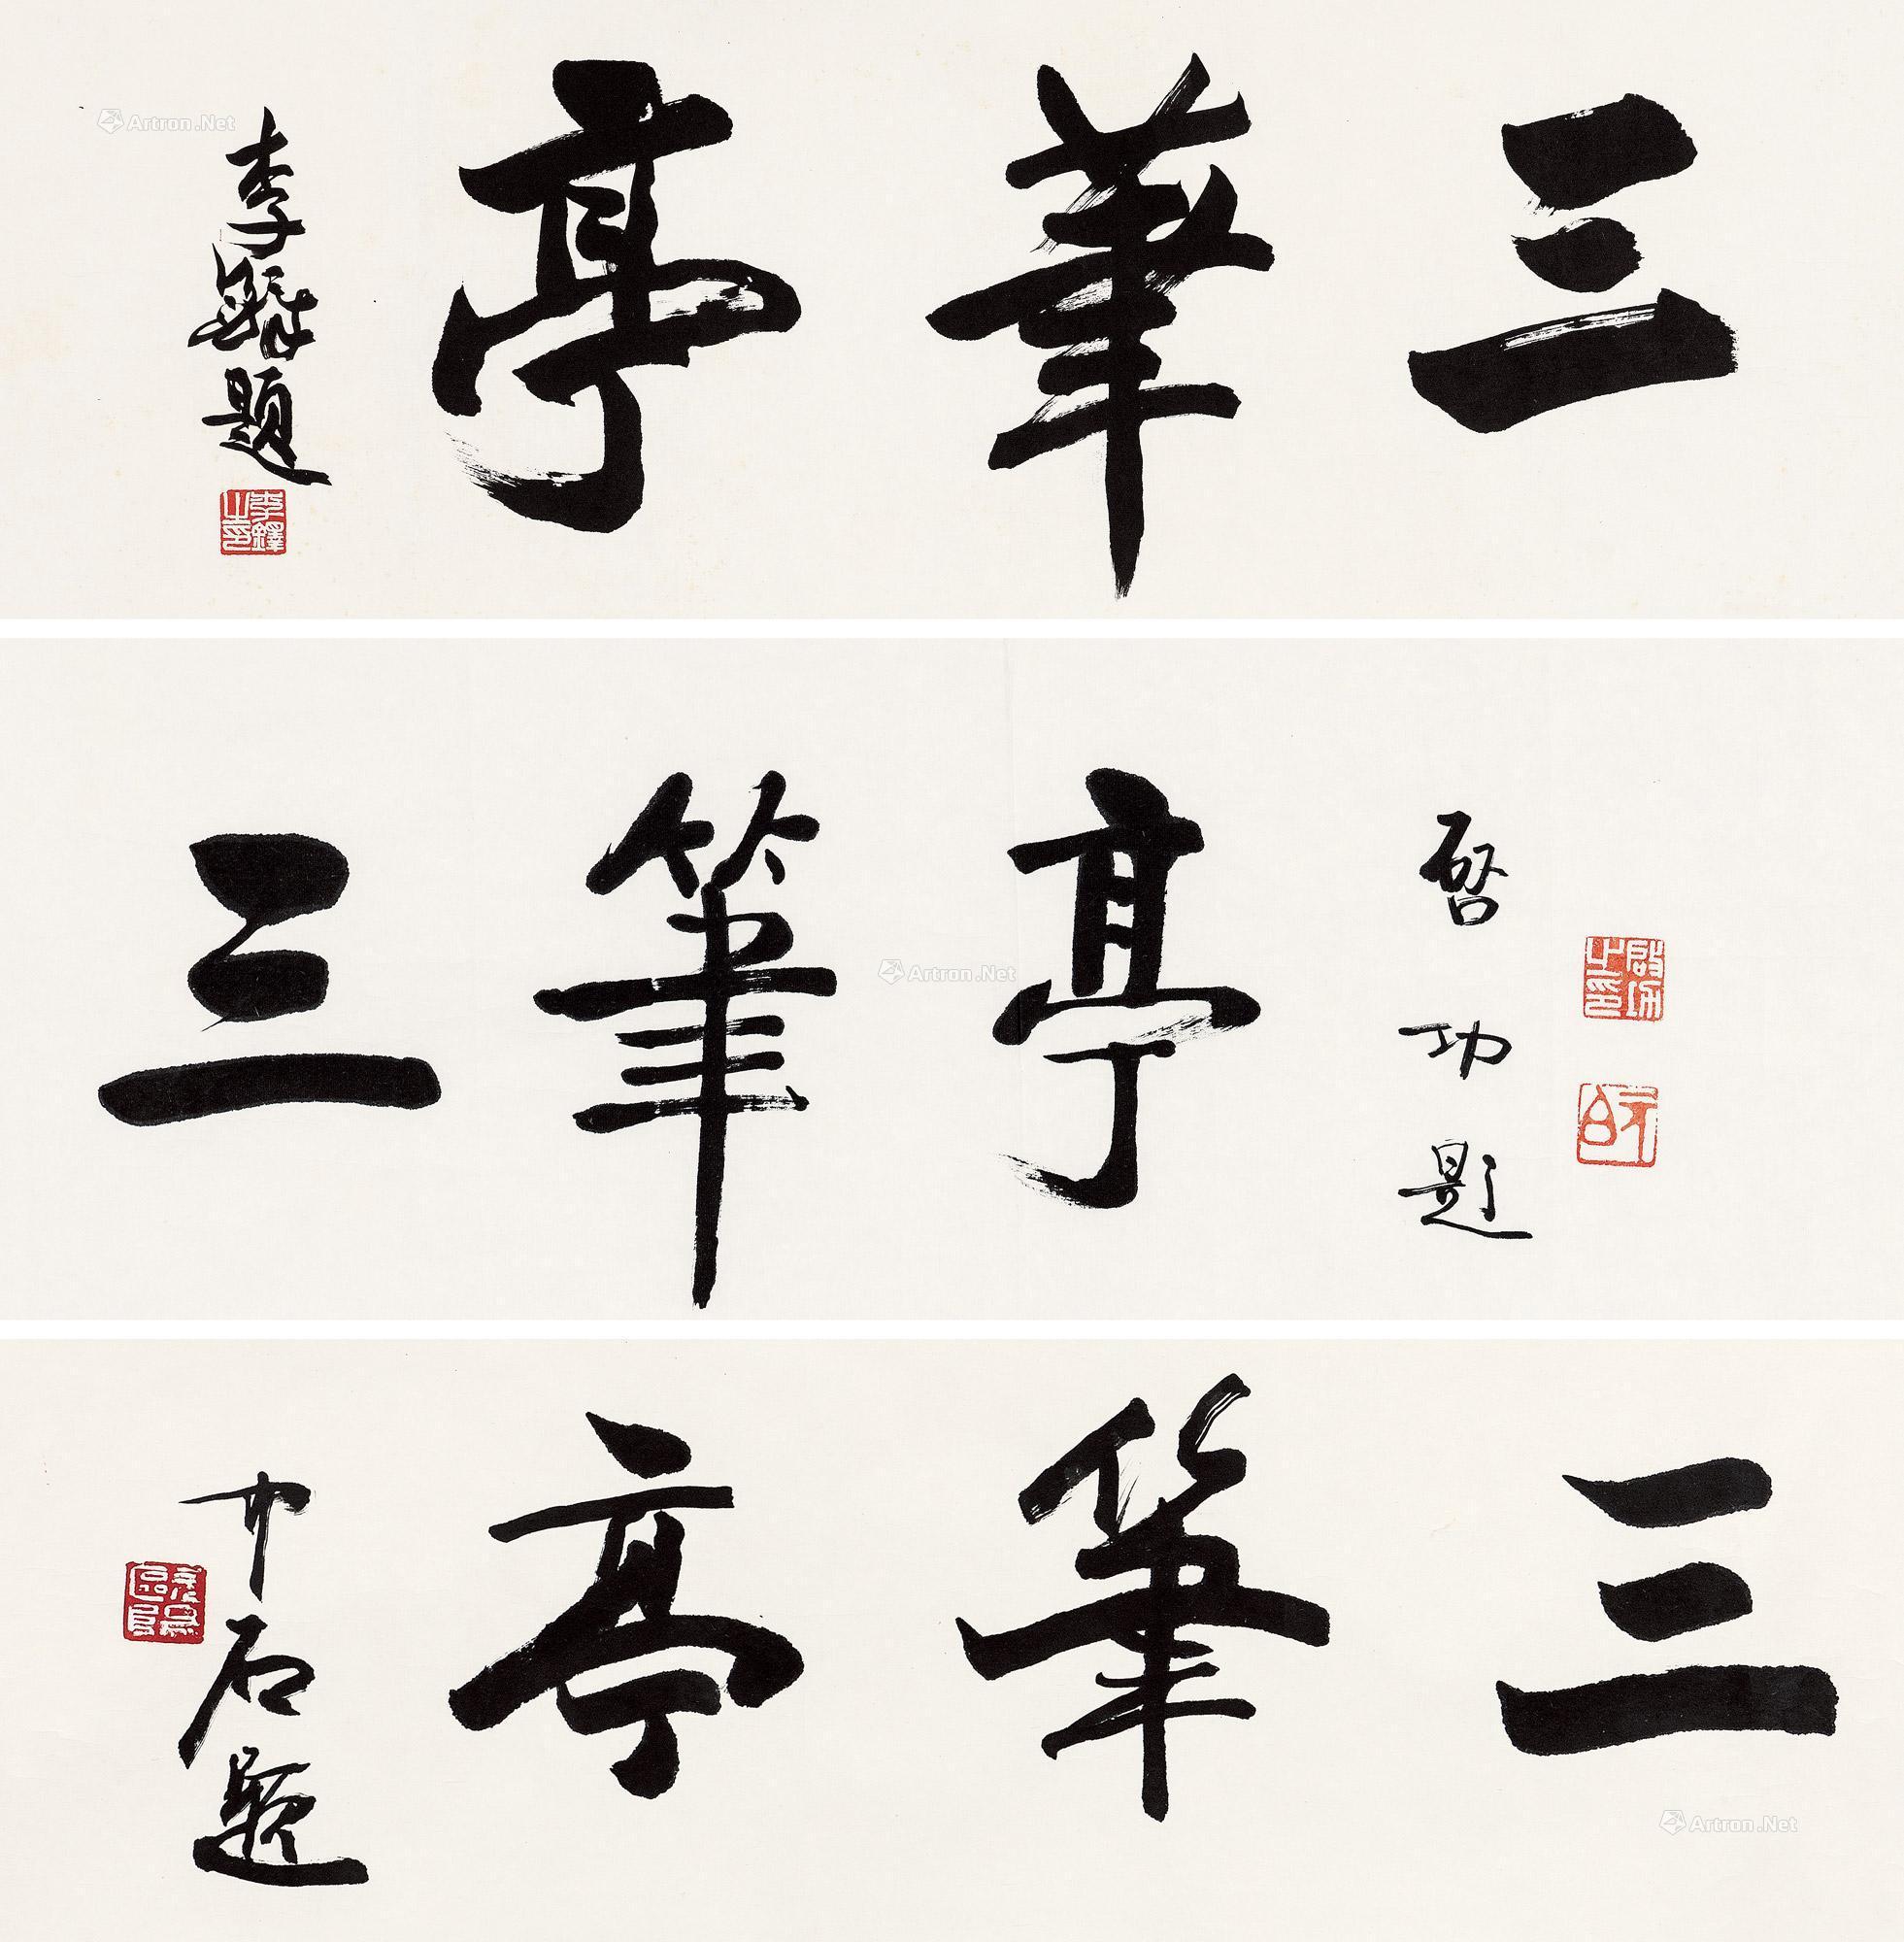 三筆亭
李鐸題
李鐸之印
三筆亭
启功題
啟功之印
元白
三筆亭
中石題
Artron.Net
Artron.Net
Artron.Net